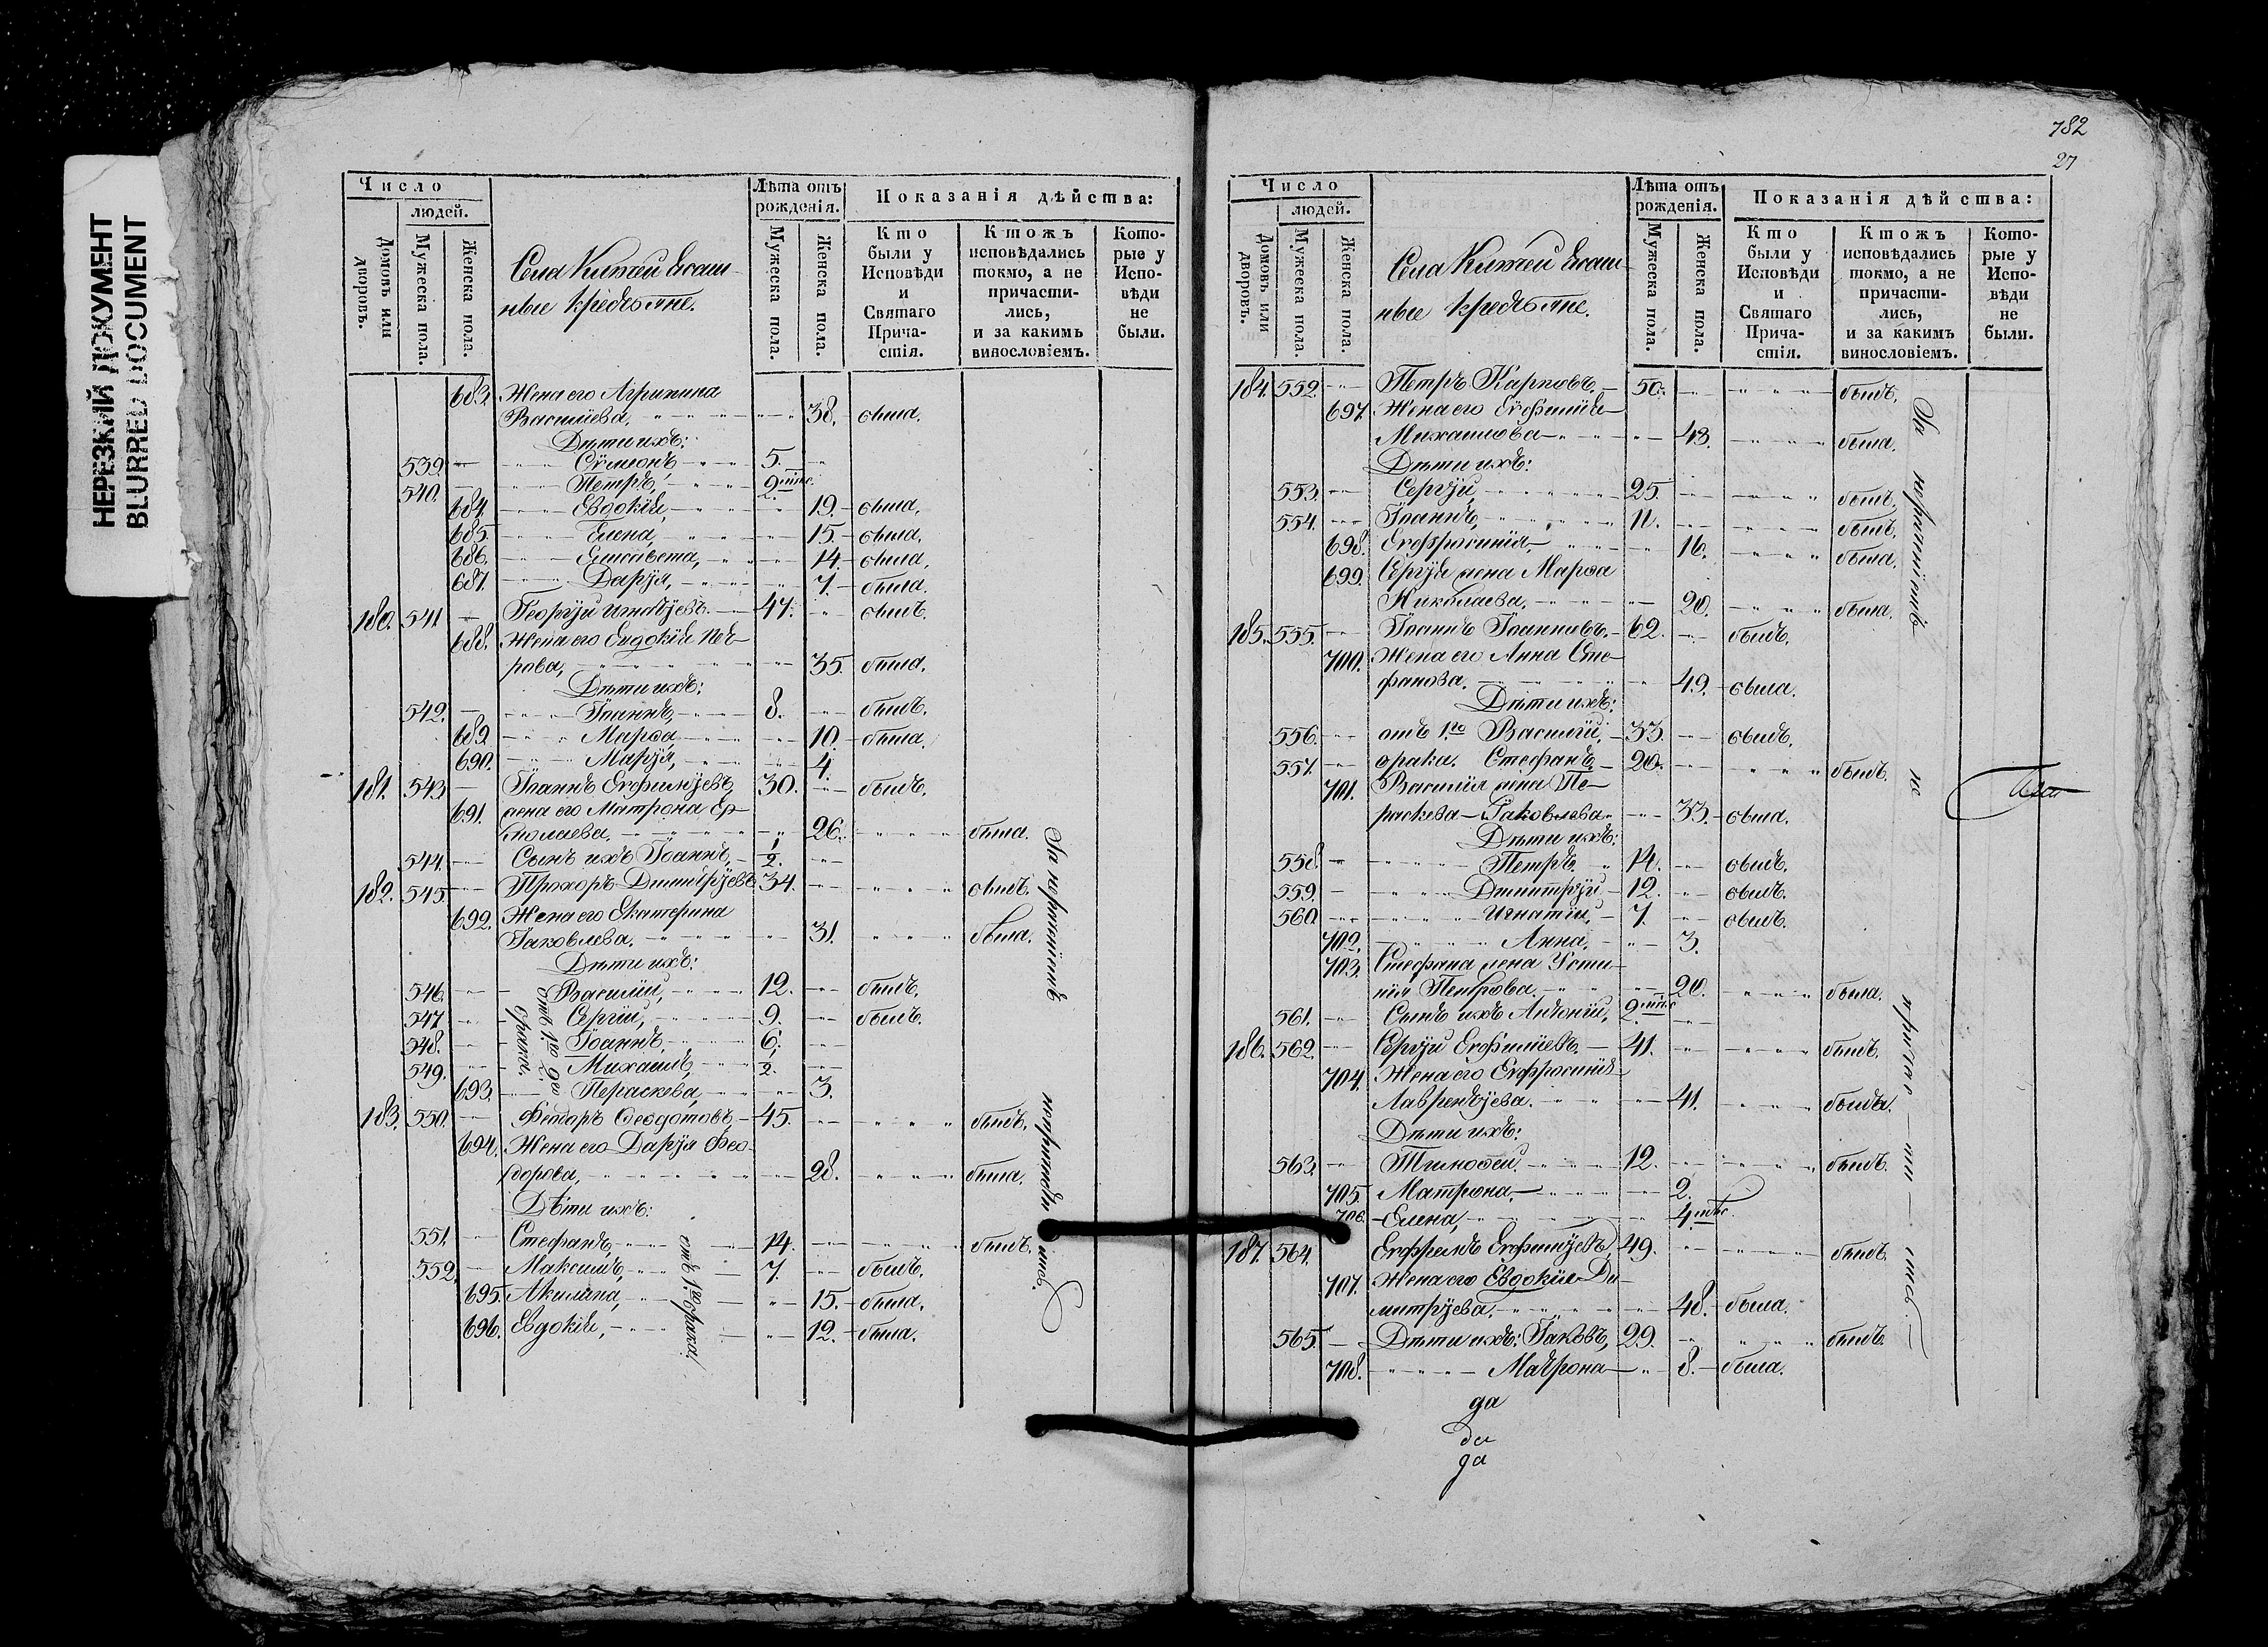 НЕРЕЗКИЙ ДОКУМЕНТ
BLURRED DOCUMENT
Число
людей.
Домовъ или дворовъ.
Мужеска пола.
Женска пола.
Села
крестьяне.
Лѣта отъ рожденія.
Мужеска пола.
Женска пола.
Показанія дѣйства:
Кто были у Исповѣди и Святаго Прича-стія.
Ктожъ исповѣдались токмо, а не причасти-лись, и за какимъ винословіемъ.
Кото-рые у Испо-вѣди не были.
683. Жена его Агрипина
Васильева, 38. была.
Дѣти ихъ:
539. Сѵмеонъ, 5.
540. Петръ, 2 мѣс.
684. Евдокія, 19. была.
685. Елена, 15. была.
686. Елисавета, 14. была.
687. Дарія, 7. была.
180. 541. Георгій Игнатіевъ 47. былъ.
688. Жена его Евдокія Пет-
рова, 35. была.
Дѣти ихъ:
542. Іоаннъ, 8. былъ.
689. Марѳа, 10. была.
690. Марія, 4.
181. 543. Іоаннъ Евфиміевъ, 30. былъ.
691. жена его Матрона Ер-
молаева, 26. была.
544. Сынъ ихъ Іоаннъ, 1/2.
182. 545. Прохоръ Димитріевъ 34. былъ.
692. Жена его Екатерина
Іаковлева. 31. была.
Дѣти ихъ:
546. Василій, 12. былъ.
547. Сергій, 9. былъ.
548. Іоаннъ, 6.
549. Михаилъ, 1/2.
693. Пераскева, 3.
отъ 1го
брака.
183. 550. Ѳеодоръ Ѳеодотовъ, 45. былъ.
694. Жена его Дарія Ѳео-
дорова, 28. была.
Дѣти ихъ:
551. Стефанъ, 14. былъ.
552. Максимъ, 7. былъ.
695. Акилина, 15. была.
696. Евдокія, 12. была.
отъ 1го брака.
За нераченіемъ
782
27
Число
людей.
Домовъ или дворовъ.
Мужеска пола.
Женска пола.
Села
крестьяне.
Лѣта отъ рожденія.
Мужеска пола.
Женска пола.
Показанія дѣйства:
Кто были у Исповѣди и Святаго Прича-стія.
Ктожъ исповѣдались токмо, а не причасти-лись, и за какимъ винословіемъ.
Кото-рые у Испо-вѣди не были.
184. 552. Петръ Карповъ. 50. былъ.
697. Жена его Евфимія
Михаилова 43. была.
Дѣти ихъ:
553. Сергій, 25. былъ.
554. Іоаннъ, 11. былъ.
698. Евфросинія, 16. была.
699. Сергія жена Марѳа
Николаева. 20. была.
185. 555. Іоаннъ Іоанновъ. 62. былъ.
700. Жена его Анна Сте-
фанова. 49. была.
Дѣти ихъ:
556. отъ 1го Василій, 33. былъ.
557. брака. Стефанъ. 20. былъ.
701. Василія жена Пе-
раскева Іаковлева 33. была.
Дѣти ихъ:
558. Петръ. 14. былъ.
559. Димитрій 12. былъ.
560. Игнатій, 7. былъ.
702. Анна. 3.
703. Стефана жена Усти-
нія Петрова. 20. была.
561. Сынъ ихъ Антоній, 2 мѣс.
186. 562. Сергій Евфиміевъ. 41. былъ.
704. Жена его Евфросинія
Лаврентіева. 41. была.
Дѣти ихъ:
563. Тимоѳей. 12. былъ.
705. Матрона, 2.
706. Елена, 4 мѣс.
187. 564. Евфремъ Евфиміевъ, 49. былъ.
707. Жена его Евдокія Ди-
митріева. 48. была.
565. Дѣти ихъ: Іаковъ, 29. былъ.
708. Матрона 8. была.
За нераченіемъ не
да
да
да